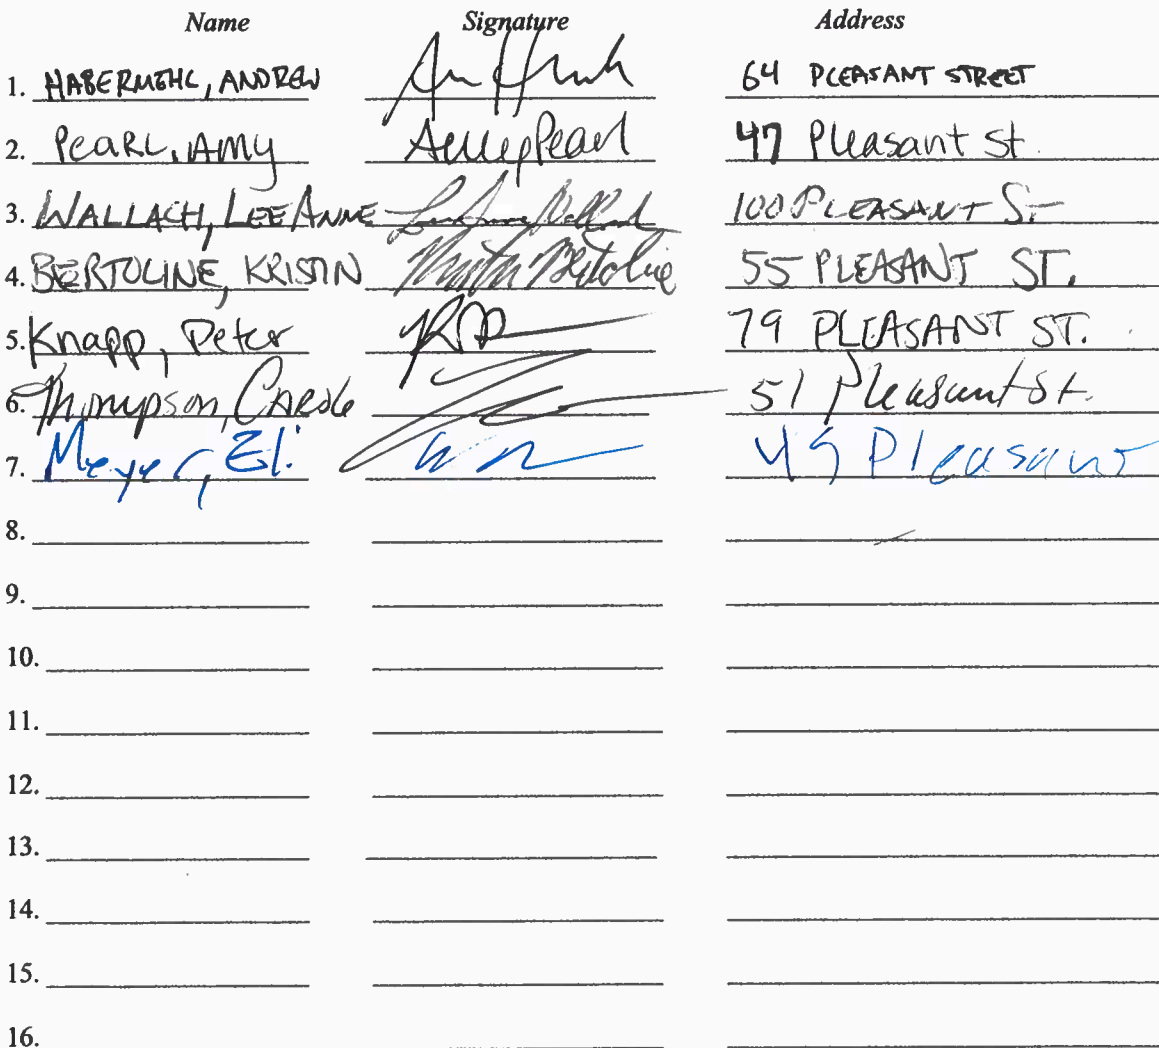 Name Signature Address
1. HABERMEHL, ANDREW 64 PLEASANT STREET
2. PEARL, AMY Amy Pearl 47 Pleasant St.
3. WALLACH, LEEANNE LeeAnne Wallach 100 PLEASANT ST
4. BERTOLINE, KRISTIN Kristin Bertoline 55 PLEASANT ST.
5. Knapp, Peter 79 PLEASANT ST.
6. Thompson, CAROLE 51 Pleasant St.
7. Meyer, Eli 49 Pleasant
8.
9.
10.
11.
12.
13.
14.
15.
16.